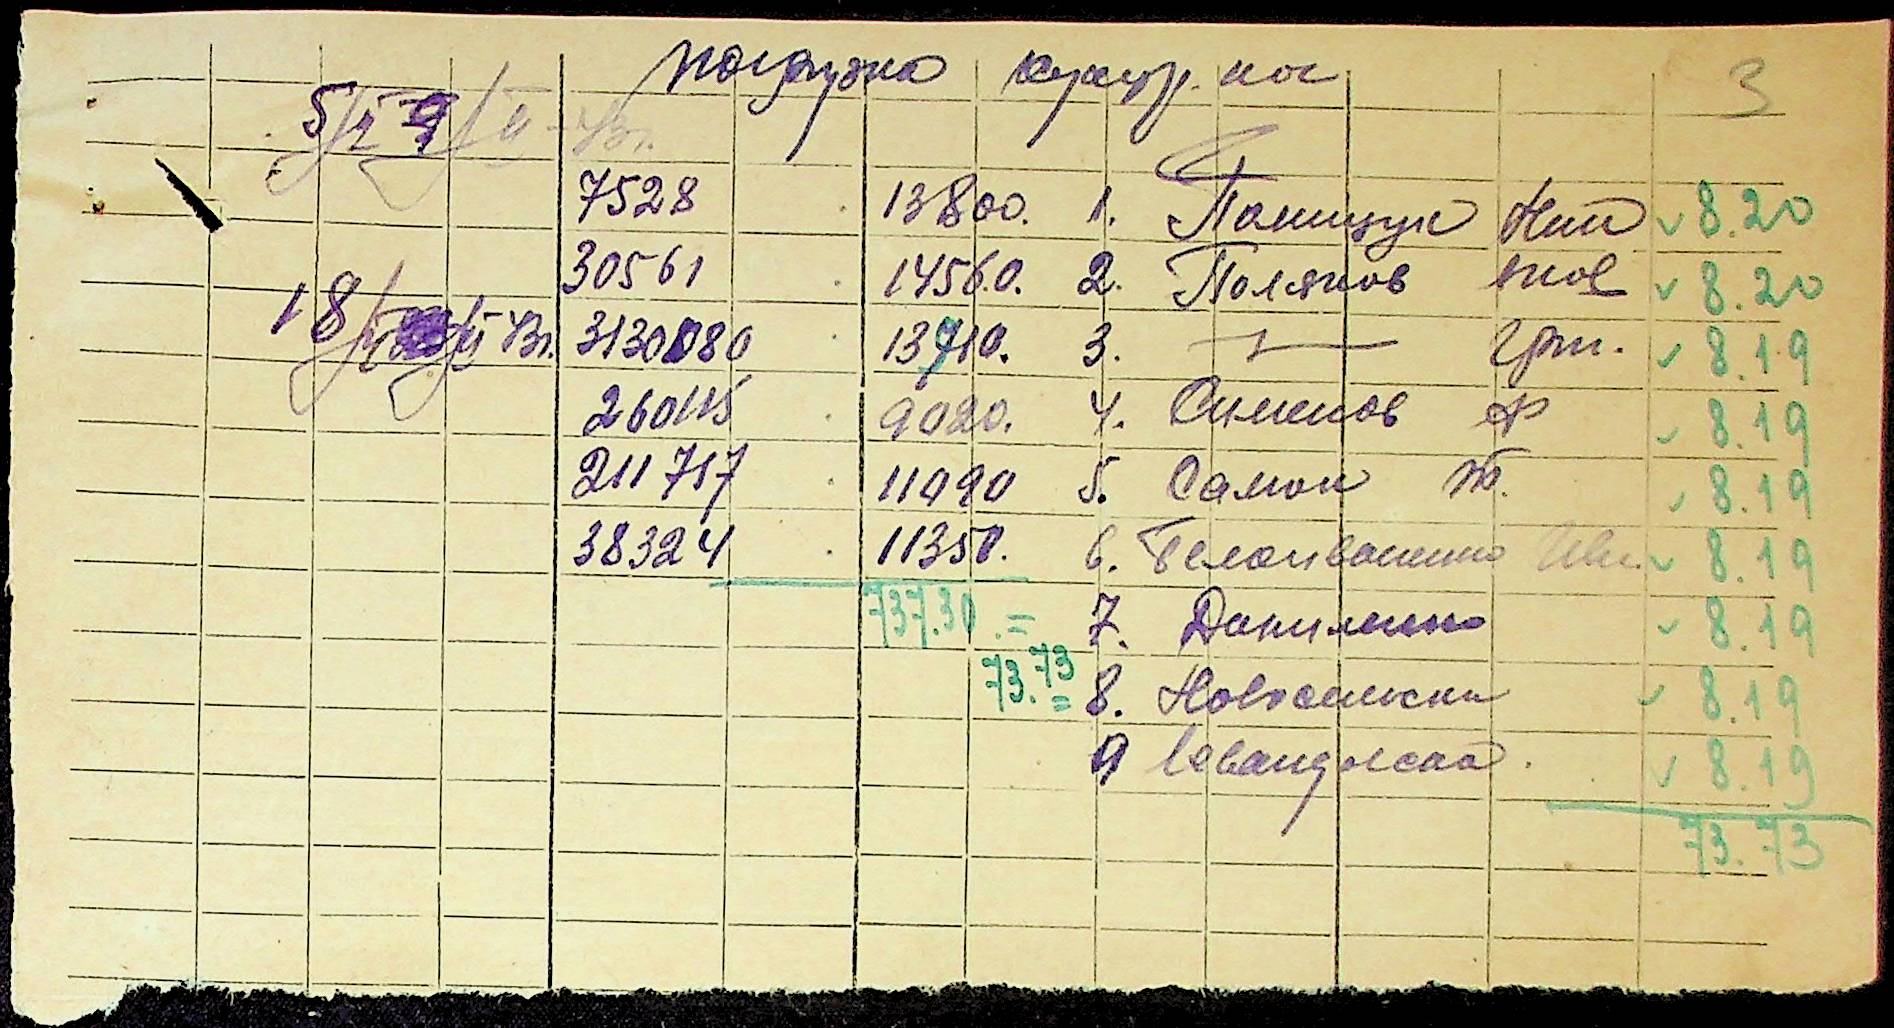 погрузка кукур. поч
3
5/ 9/II-73г.
7528 13800. 1. Полищук Ник ✓ 8.20
30561 14560. 2. Поляков Яков ✓ 8.20
18/ /II 73г. 3130080 13710. 3. —〃— Григ. ✓ 8.19
260115 9020. 4. Симонов Ф ✓ 8.19
211717 11090 5. Самон ✓ 8.19
38324 11350. 6. Белоиваненко Ив. ✓ 8.19
737.30 = 7. Даниленко ✓ 8.19
73.73 = 8. Новосельски ✓ 8.19
9 Левандовский. ✓ 8.19
73.73